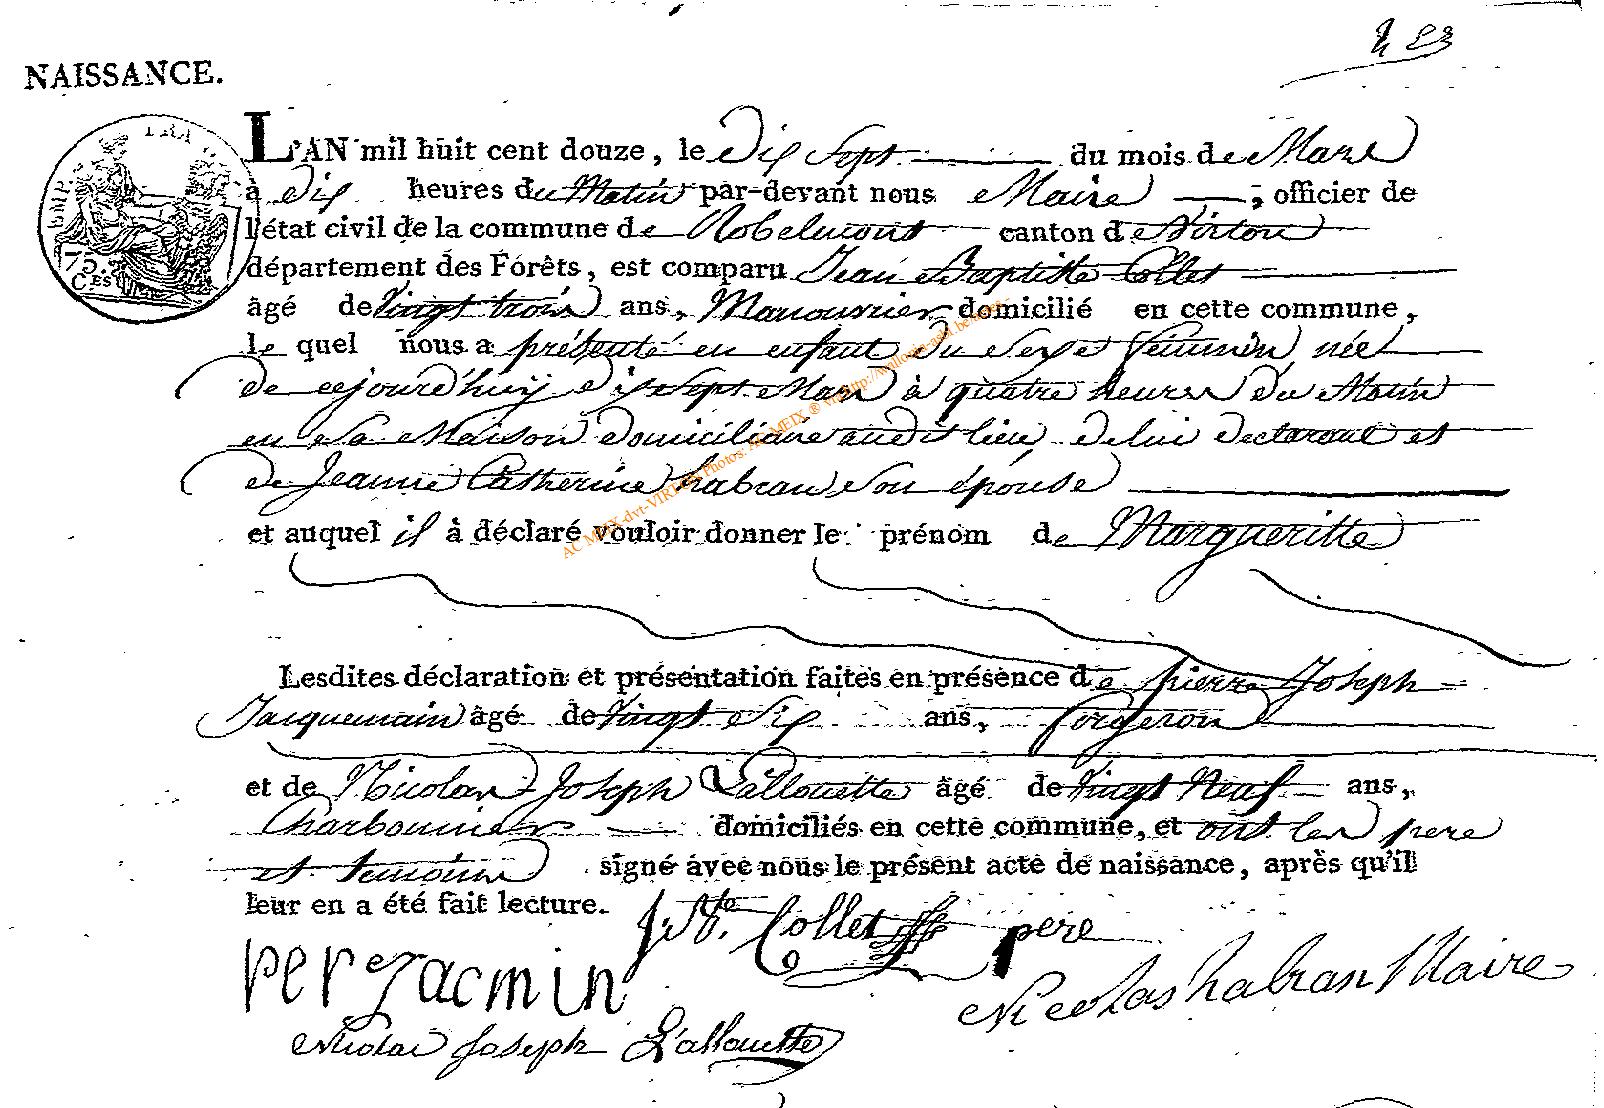 NAISSANCE.
L'AN mil huit cent douze, le Dix Sept du mois de Mars
à dix heures du Matin par-devant nous Maire, officier de
l'état civil de la commune de Robelmont canton de Virton
département des Forêts, est comparu Jean Baptiste Collet
âgé de vingt trois ans, Manouvrier domicilié en cette commune,
le quel nous a présenté en enfant du Sexe féminin née
de cejourd'huy dix Sept Mars à quatre heures du Matin
en Sa Maison domiciliaire audit lieu, de lui declarant et
de Jeanne Catherine habran son épouse
et auquel il à déclaré vouloir donner le prénom de Margueritte
Lesdites déclaration et présentation faites en présence de pierre Joseph
Jacquemain âgé de vingt Six ans, forgeron
et de Nicolas Joseph Lallouette âgé de vingt Neuf ans,
Charbonnier domiciliés en cette commune, et ont les pere
et temoins signé avec nous le présent acte de naissance, après qu'il
leur en a été fait lecture.
J. Bte. Collet pere
per Jacmin
Nicolas habran Maire
Nicolas Joseph L'allouette
EMP
FRA
75
CES